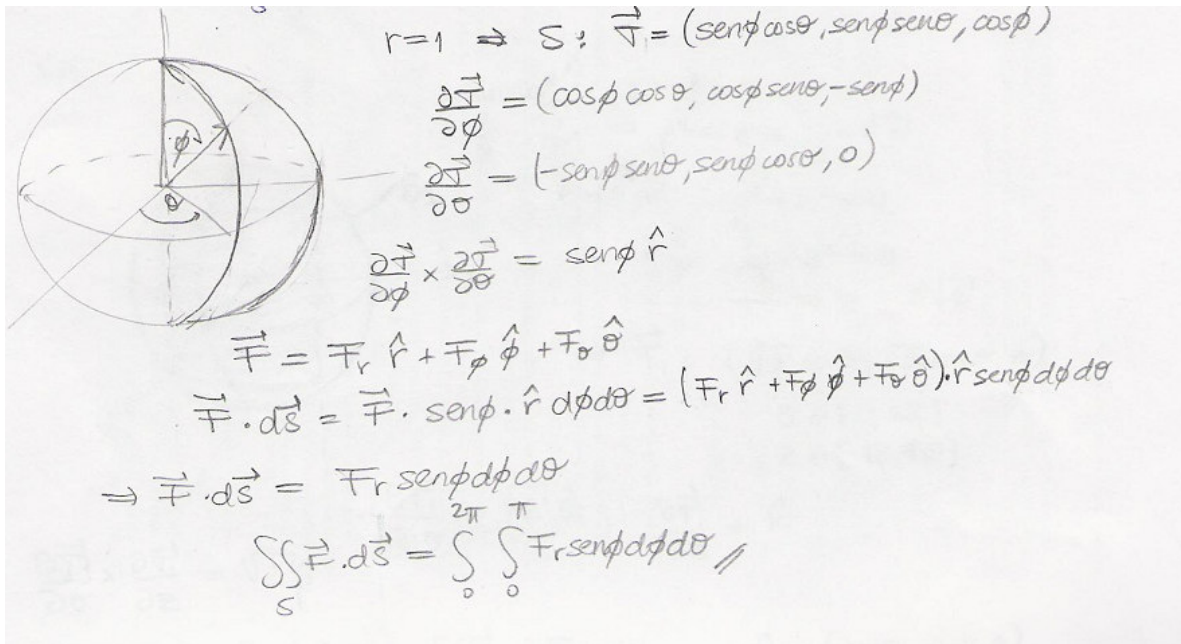 r=1 ⇒ S: T⃗ = (senφcosθ, senφsenθ, cosφ)
∂T⃗/∂φ = (cosφ cosθ, cosφ senθ, -senφ)
φ
∂T⃗/∂θ = (-senφ senθ, senφ cosθ, 0)
θ
∂T⃗/∂φ × ∂T⃗/∂θ = senφ r̂
F⃗ = Fr r̂ + Fφ φ̂ + Fθ θ̂
F⃗ · ds⃗ = F⃗ · senφ · r̂ dφdθ = (Fr r̂ + Fφ φ̂ + Fθ θ̂)·r̂ senφ dφ dθ
⇒ F⃗ · ds⃗ = Fr senφ dφ dθ
∬S F⃗ · ds⃗ = ∫0^2π ∫0^π Fr senφ dφ dθ //